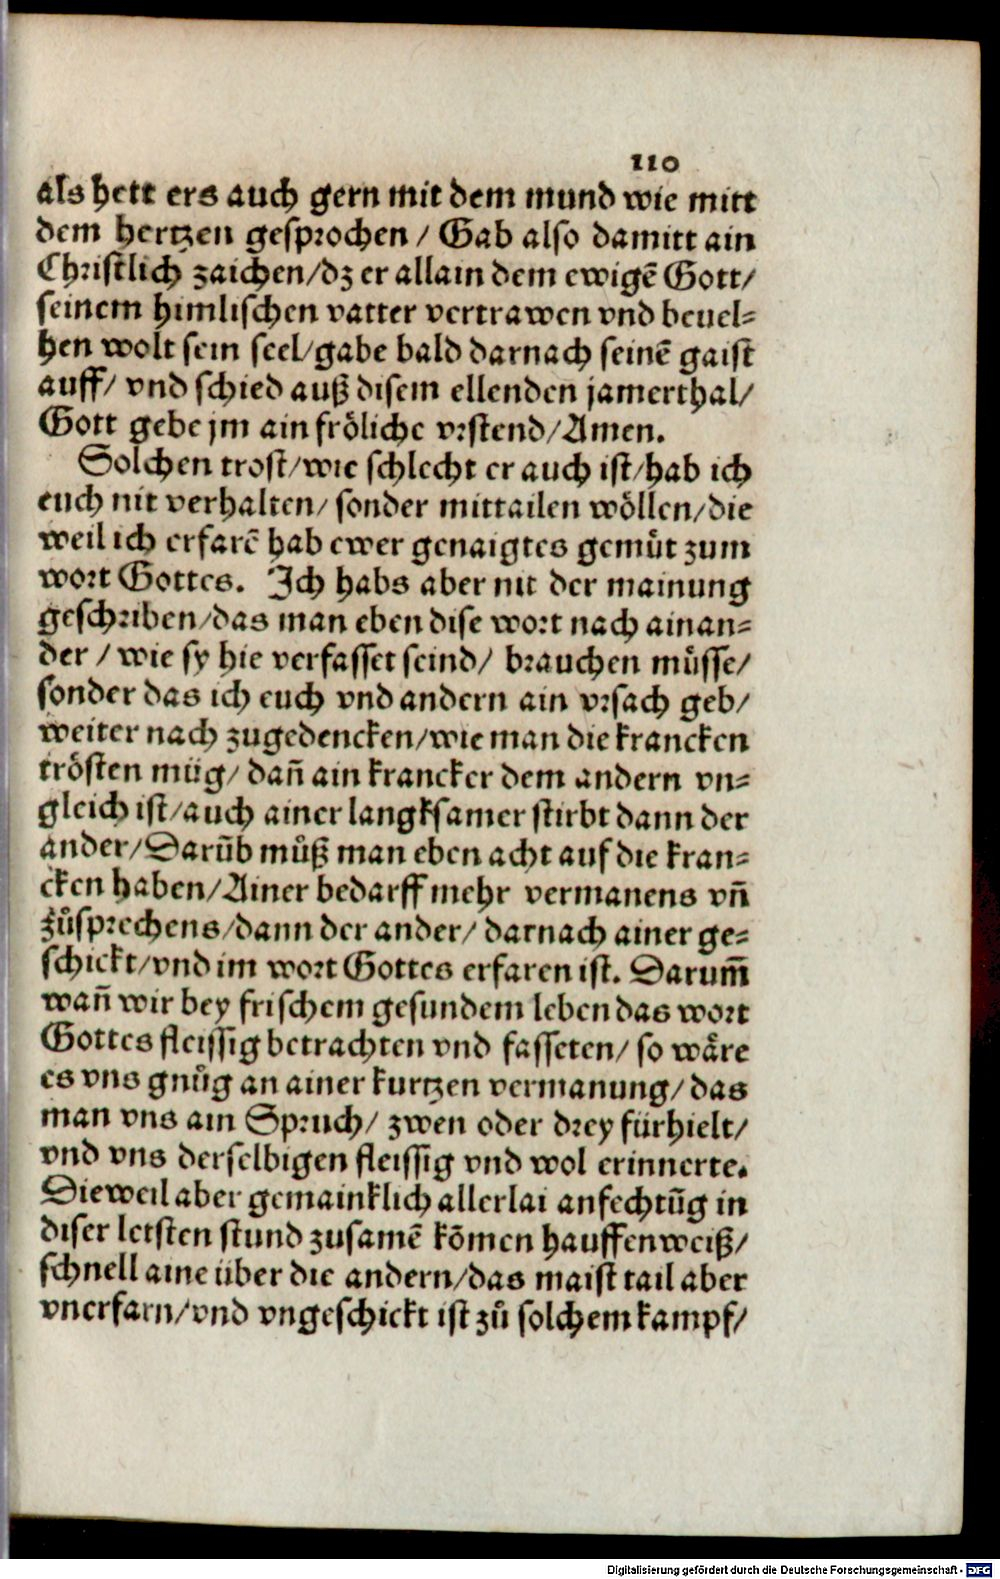 110
als hett ers auch gern mit dem mund wie mitt
dem hertzen gesprochen / Gab also damitt ain
Christlich zaichen/dz er allain dem ewigē Gott/
seinem himlischen vatter vertrawen vnd beuel=
hen wolt sein seel/gabe bald darnach seinē gaist
auff/ vnd schied auß disem ellenden jamerthal/
Gott gebe jm ain fröliche vrstend/Amen.
Solchen trost/wie schlecht er auch ist/hab ich
euch nit verhalten/ sonder mittailen wöllen/die
weil ich erfarē hab ewer genaigtes gemüt zum
wort Gottes. Ich habs aber nit der mainung
geschriben/das man eben dise wort nach ainan=
der / wie sy hie verfasset seind/ brauchen müsse/
sonder das ich euch vnd andern ain vrsach geb/
weiter nach zugedencken/wie man die krancken
trösten müg/ dañ ain krancker dem andern vn=
gleich ist/auch ainer langksamer stirbt dann der
ander/Darūb můß man eben acht auf die kran=
cken haben/Ainer bedarff mehr vermanens vñ
zůsprechens/dann der ander/ darnach ainer ge=
schickt/vnd im wort Gottes erfaren ist. Darum̄
wañ wir bey frischem gesundem leben das wort
Gottes fleissig betrachten vnd fasseten/ so wäre
es vns gnůg an ainer kurtzen vermanung/das
man vns ain Spruch/ zwen oder drey fürhielt/
vnd vns derselbigen fleissig vnd wol erinnerte.
Dieweil aber gemainklich allerlai anfechtūg in
diser letsten stund zusamē kōmen hauffenweiß/
schnell aine über die andern/das maist tail aber
vnerfarn/vnd vngeschickt ist zů solchem kampf/
Digitalisierung gefördert durch die Deutsche Forschungsgemeinschaft - DFG